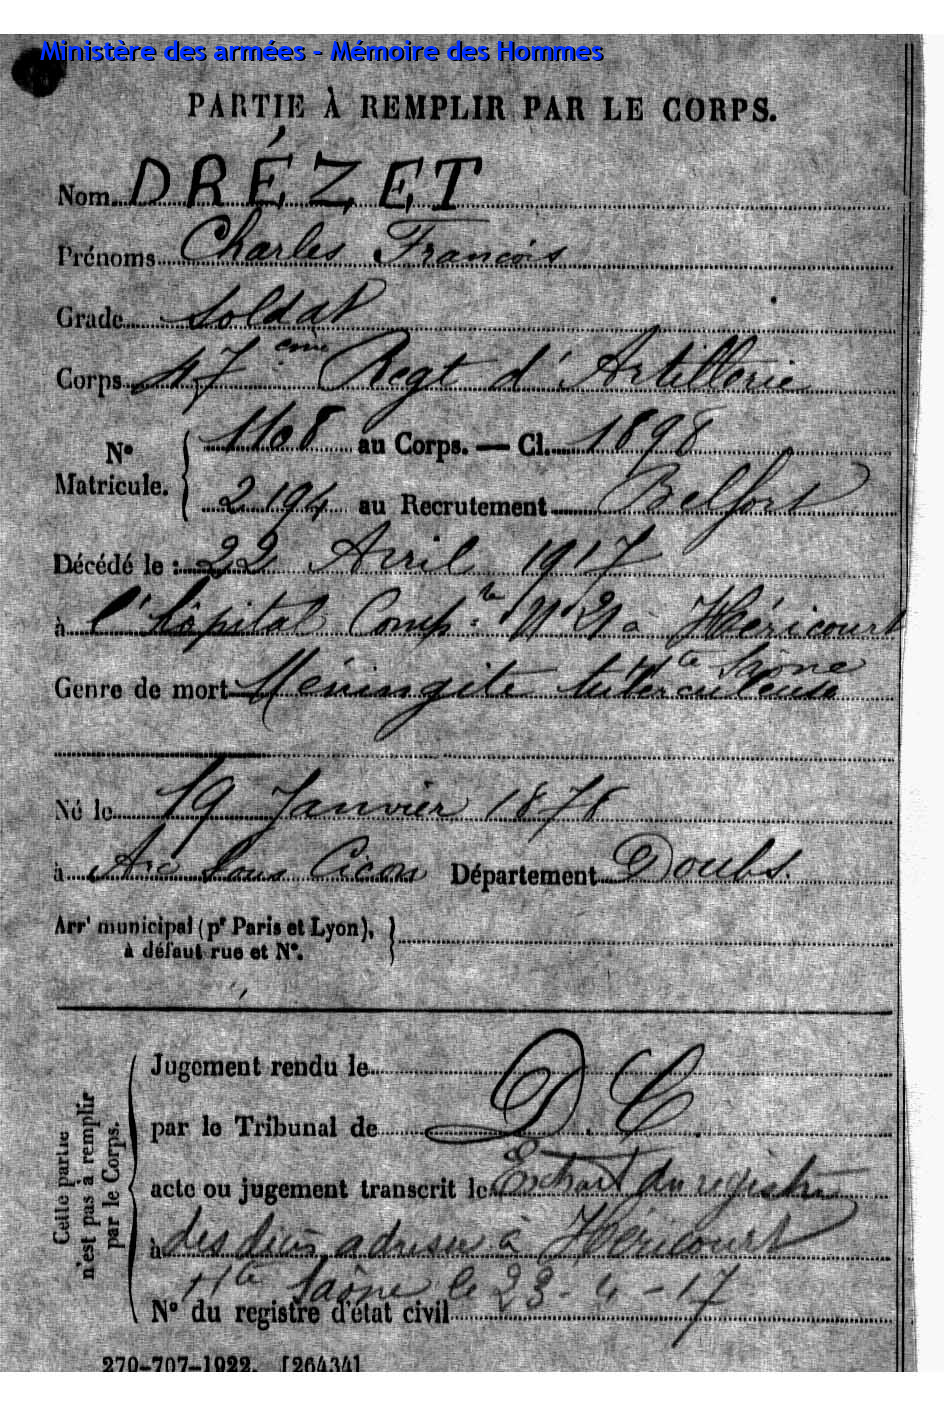 Ministère des armées - Mémoire des Hommes
PARTIE À REMPLIR PAR LE CORPS.
Nom DRÉZET
Prénoms Charles François
Grade Soldat
Corps 47 eme Regt d'Artillerie
N° Matricule. { 1108 au Corps. — Cl. 1898
2194 au Recrutement Belfort
Décédé le : 22 Avril 1917
à l'hôpital Comp.re N°21 à Héricourt
Hte Saône
Genre de mort Méningite tuberculeuse
Né le 19 Janvier 1878
à Arc Sous Cicon Département Doubs.
Arr' municipal (pr Paris et Lyon),
à défaut rue et N°.
Cette partie n'est pas à remplir par le Corps.
Jugement rendu le
par le Tribunal de D. C.
acte ou jugement transcrit le Extrait du registre
à des décès adressé à Héricourt
Hte Saône le 23-4-17
N° du registre d'état civil
270-707-1922. [26434]